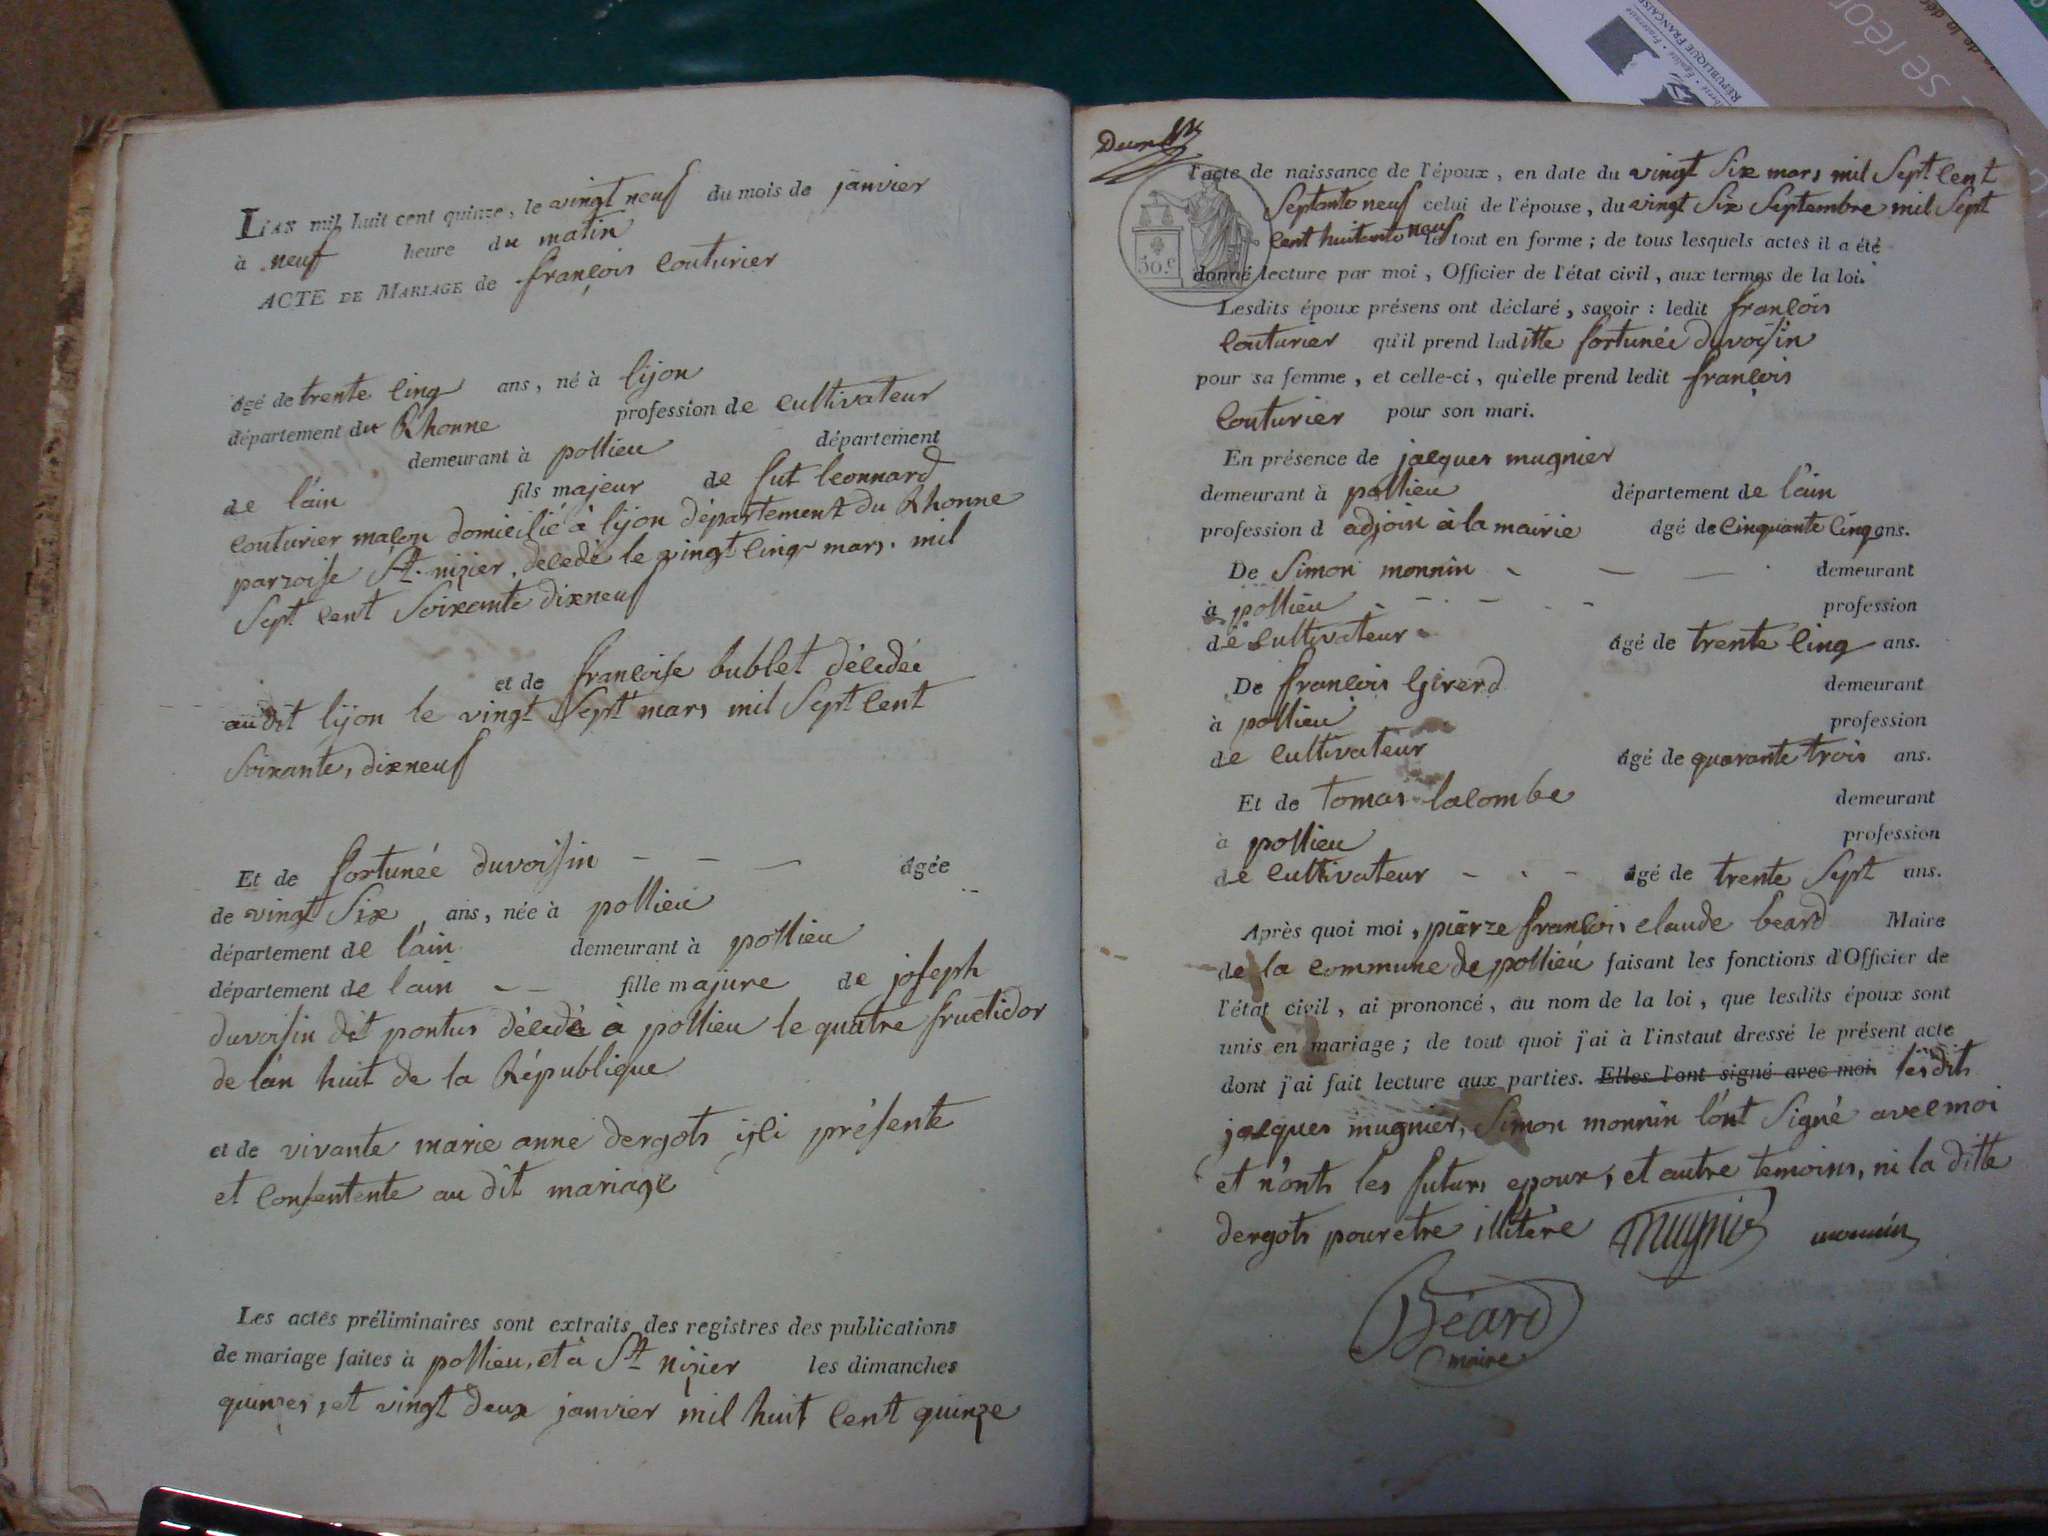 L'AN mil huit cent quinze, le vingt neuf du mois de janvier
à neuf heure du matin
ACTE DE MARIAGE de françois Couturier
âgé de trente cinq ans, né à lijon
département du Rhonne profession de cultivateur
demeurant à pollieu département
de l'ain fils majeur de fut leonnard
couturier maçon domicilié à lijon département du Rhonne
parroisse St. nizier, décedé le vingt cinq mars mil
Sept cent Soixante dixneuf
et de françoise bublet décedée
au dit lijon le vingt Sept mars mil Sept cent
Soixante, dixneuf
Et de fortunée duvoisin âgée
de vingt Six ans, née à pollieu
département de l'ain demeurant à pollieu
département de lain fille majure de joseph
duvoisin dit pontus décedé à pollieu le quatre fructidor
de l'an huit de la République
et de vivante marie anne dergots içli présente
et consentente au dit mariage
Les actes préliminaires sont extraits des registres des publications
de mariage faites à pollieu, et à St nizier les dimanches
quinzes, et vingt deux janvier mil huit cent quinze
l'acte de naissance de l'époux, en date du vingt Six mars mil Sept cent
Septante neuf celui de l'épouse, du vingt Six Septembre mil Sept
cent huitante neuf le tout en forme ; de tous lesquels actes il a été
donné lecture par moi, Officier de l'état civil, aux termes de la loi.
50 c
Lesdits époux présens ont déclaré, savoir : ledit françois
Couturier qu'il prend laditte fortunée duvoisin
pour sa femme, et celle-ci, qu'elle prend ledit françois
Couturier pour son mari.
En présence de jacques mugnier
demeurant à pollieu département de l'ain
profession d adjoin à la mairie âgé de cinquante cinq ans.
De Simon monnin demeurant
à pollieu profession
de cultivateur âgé de trente cinq ans.
De françois Girerd demeurant
à pollieu profession
de cultivateur âgé de quarante trois ans.
Et de tomas lacombe demeurant
à pollieu profession
de cultivateur âgé de trente Sept ans.
Après quoi moi, pierre françois claude beard Maire
de la commune de pollieu faisant les fonctions d'Officier de
l'état civil, ai prononcé, au nom de la loi, que lesdits époux sont
unis en mariage ; de tout quoi j'ai à l'instaut dressé le présent acte
dont j'ai fait lecture aux parties. Elles l'ont signé avec moi. lesdits
jacques mugnier, Simon monnin l'ont Signé avec moi
et n'onts les futurs epoux, et autre temoins, ni la ditte
dergots pour etre illitère Mugnié monnin
Béard
maire
RÉPUBLIQUE FRANÇAISE
Liberté • Égalité • Fraternité